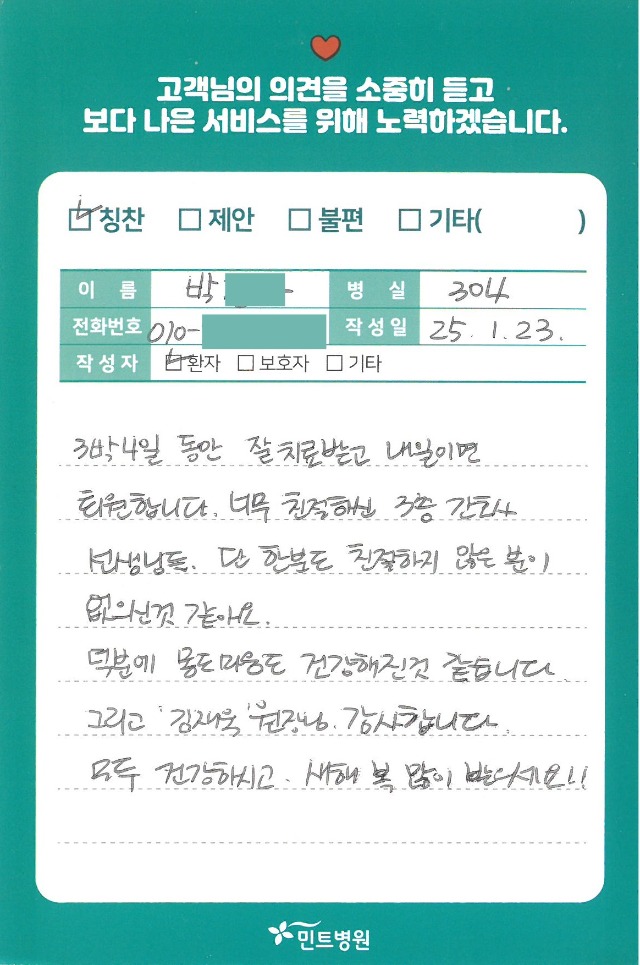 고객님의 의견을 소중히 듣고
보다 나은 서비스를 위해 노력하겠습니다.
칭찬 제안 불편 기타( )
이 름 박 병 실 304
전화번호 010- 작성일 25. 1. 23.
작성자 환자 보호자 기타
3박4일 동안 잘 치료받고 내일이면
퇴원합니다. 너무 친절하신 3층 간호사
선생님들. 단 한분도 친절하지 않은 분이
없으신것 같아요.
덕분에 몸도마음도 건강해진것 같습니다.
그리고 '김재욱' 원장님. 감사합니다.
모두 건강하시고. 새해 복 많이 받으세요!!
민트병원